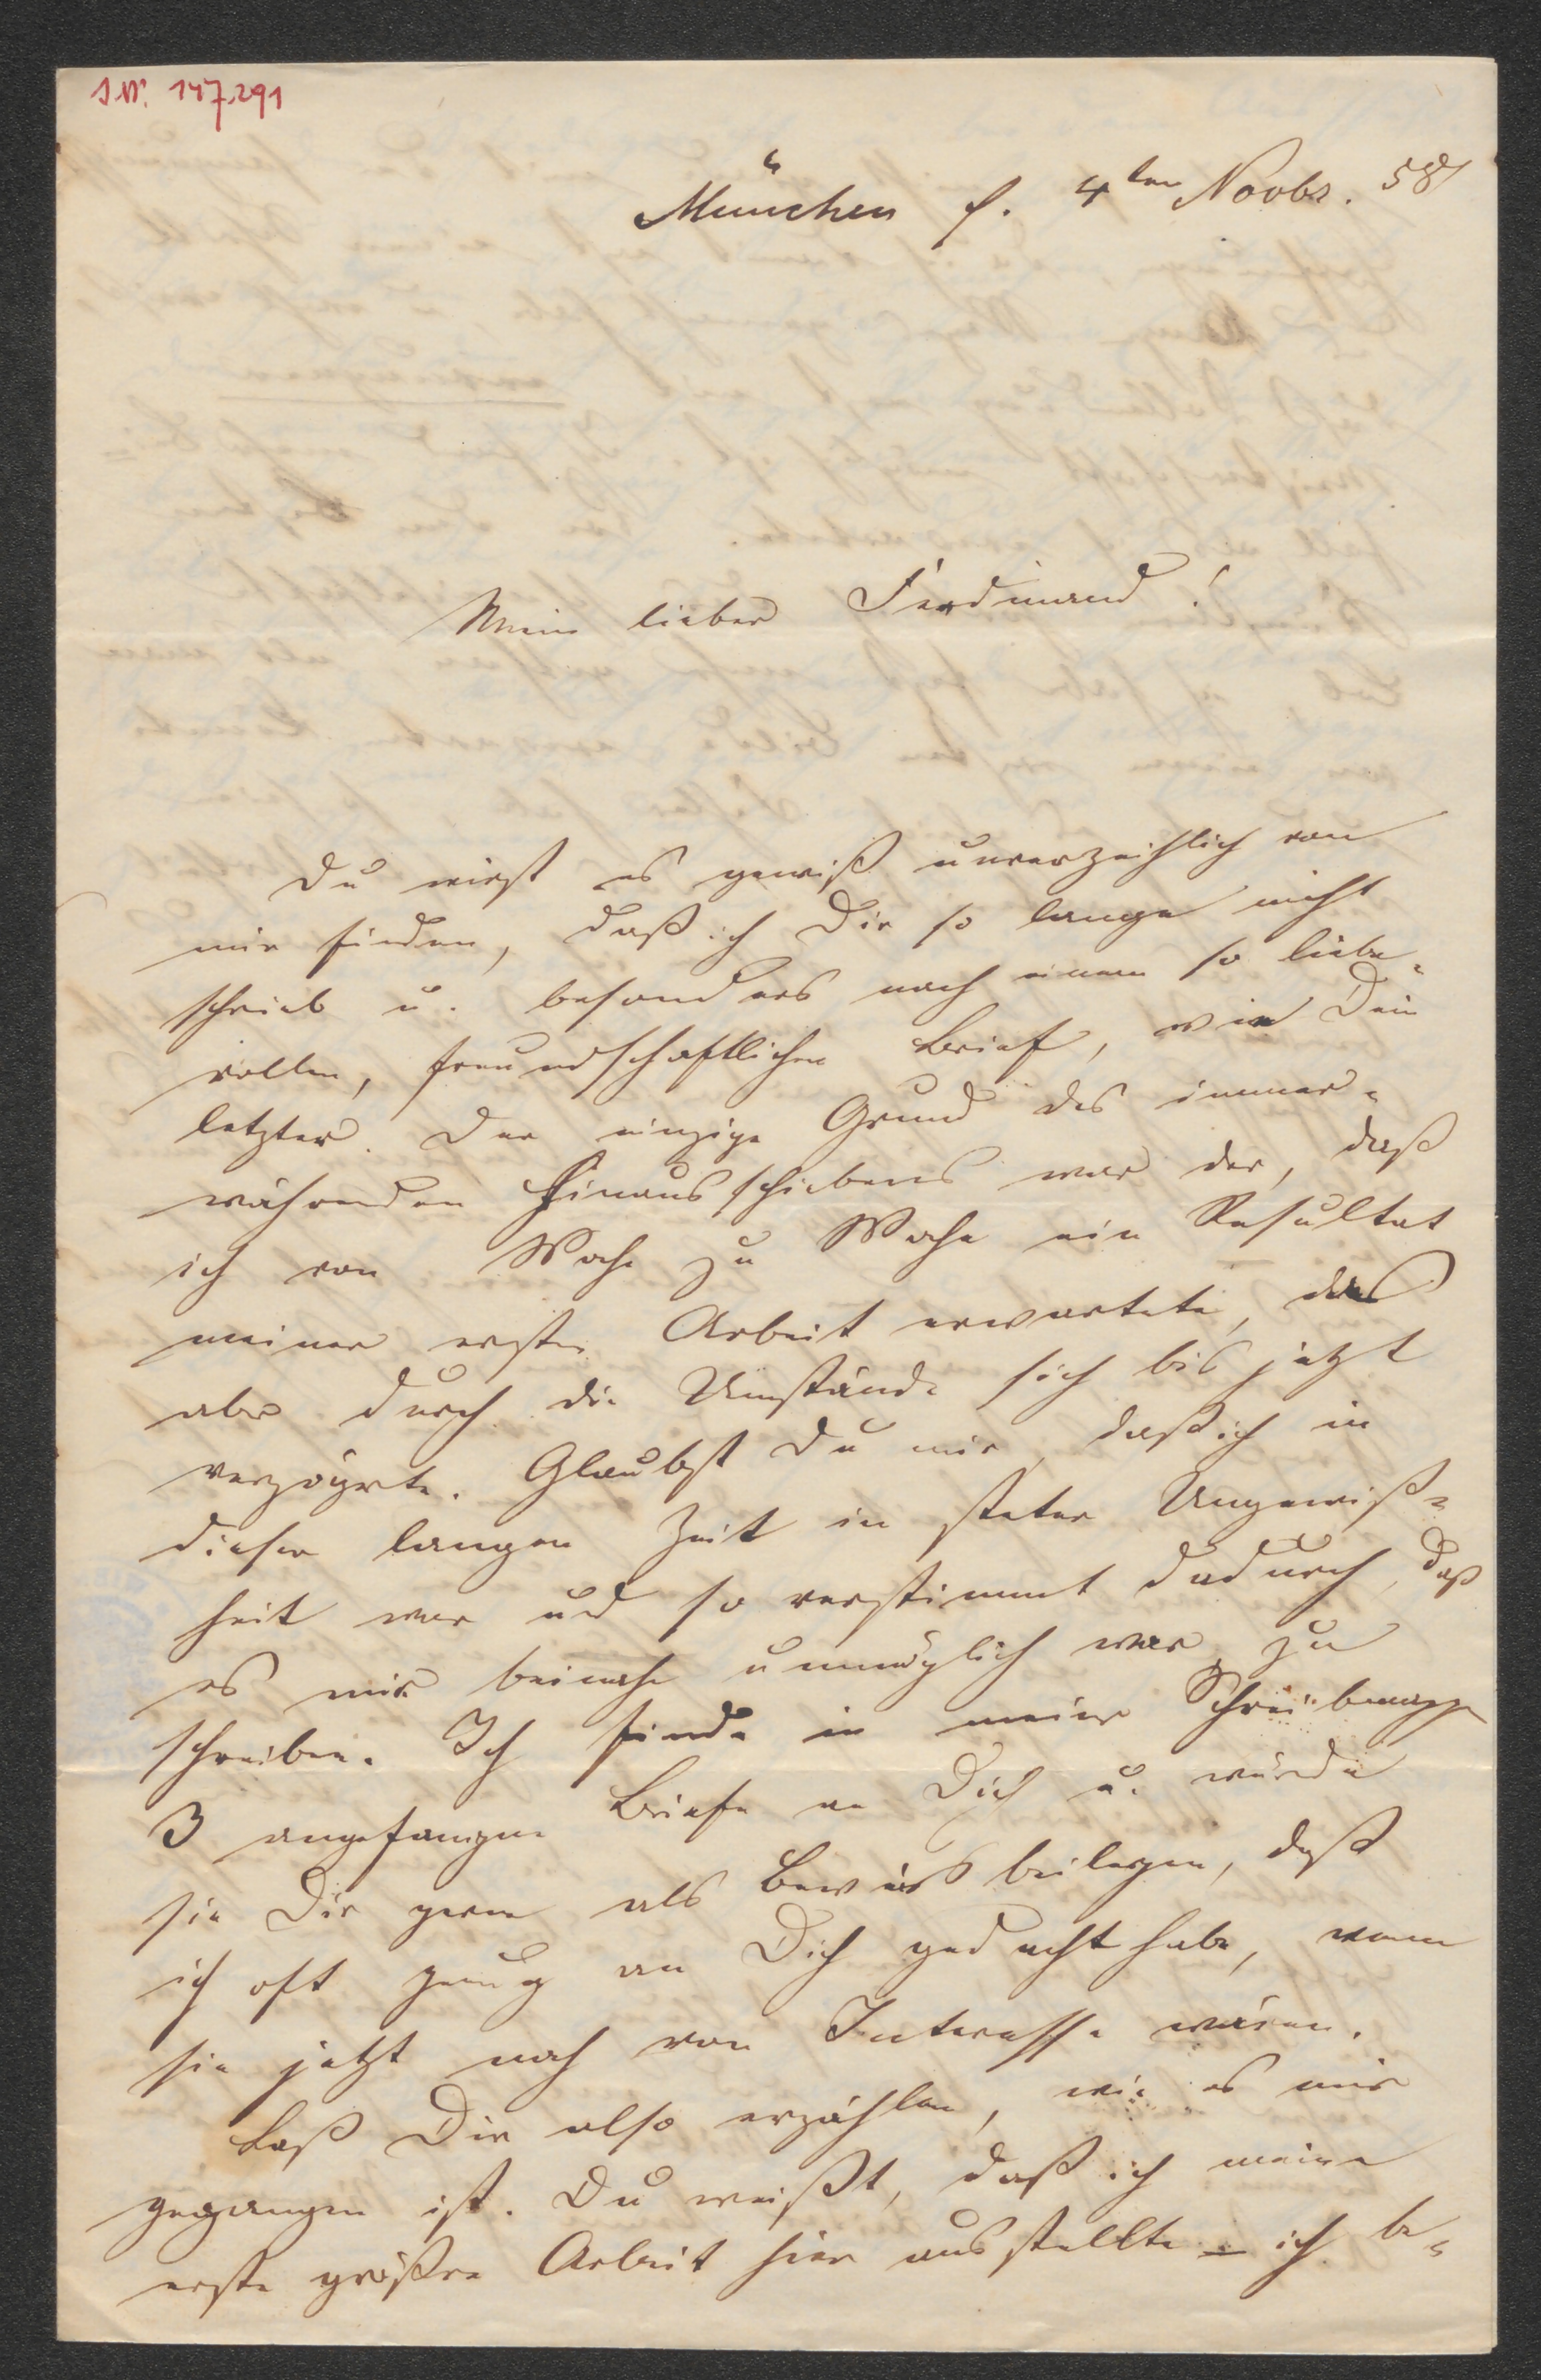 J.N. 147.291
München d. 4ten Novbr. 58
Mein lieber Ferdinand!
Du wirst es gewiß unverzeihlich von
mir finden, daß ich Dir so lange nicht
schrieb u. besonders nach einem so liebe-
vollen, freundschaftlichen Brief, wie Dein
letzter. Der einzige Grund des immer-
währenden Hinausschiebens war der, daß
ich von Woche zu Woche ein Resultat
meiner ersten Arbeit erwartete, das
aber durch die Umstände sich bis jetzt
verzögerte. Glaubst Du mir, daß ich in
dieser langen Zeit in steter Ungewiß-
heit war und so verstimmt dadurch, daß
es mir beinahe unmöglich war zu
schreiben. Ich finde in meiner Schreibmappe
3 angefangene Briefe an Dich u. würde
sie Dir gerne als Beweis beilegen, daß
ich oft genug an Dich gedacht habe, wenn
sie jetzt noch von Interesse wären.
Laß Dir also erzählen, wie es mir
gegangen ist. Du weißt, daß ich meine
erste größere Arbeit hier ausstellte – ich be-